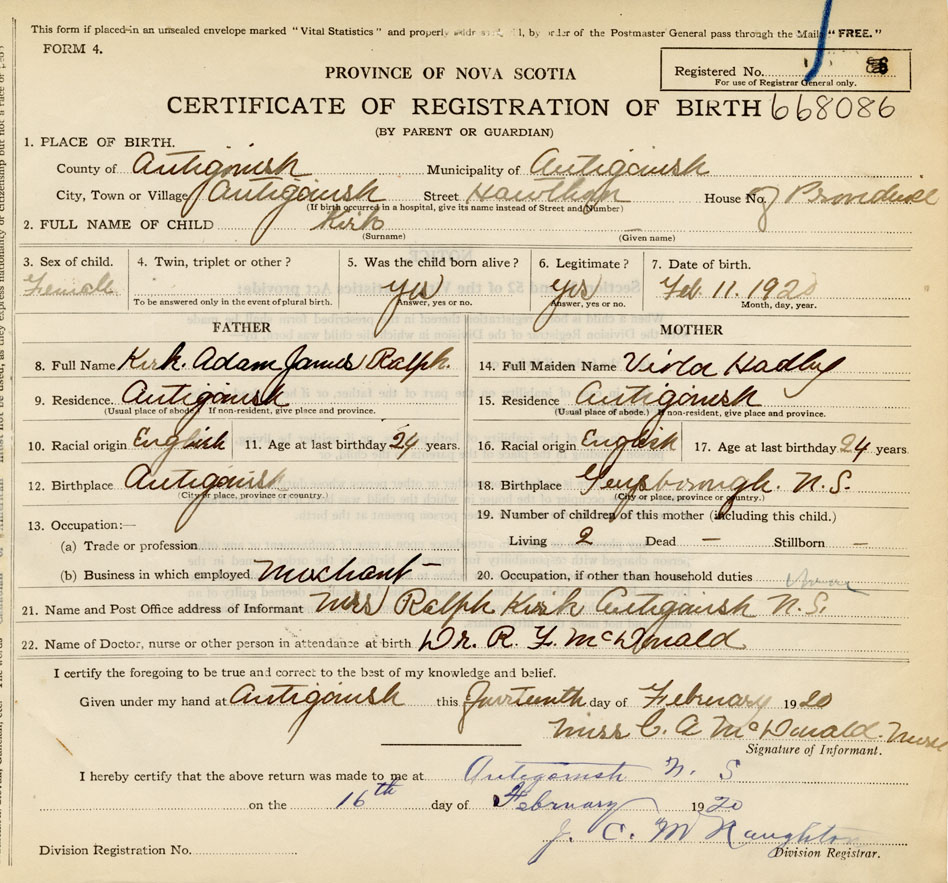 This form if placed in an unsealed envelope marked "Vital Statistics" and properly addressed, will, by order of the Postmaster General pass through the Mails "FREE."
FORM 4.
PROVINCE OF NOVA SCOTIA
Registered No.
For use of Registrar General only.
CERTIFICATE OF REGISTRATION OF BIRTH 668086
(BY PARENT OR GUARDIAN)
1. PLACE OF BIRTH.
County of Antigonish Municipality of Antigonish
City, Town or Village Antigonish Street Hawthorn House No.
(If birth occurred in a hospital, give its name instead of Street and Number)
2. FULL NAME OF CHILD Kirk
(Surname) (Given name)
3. Sex of child. 4. Twin, triplet or other? 5. Was the child born alive? 6. Legitimate? 7. Date of birth.
Female yes yes Feb. 11. 1920
To be answered only in the event of plural birth. Answer, yes or no. Answer, yes or no. Month, day, year.
FATHER MOTHER
8. Full Name Kirk. Adam James Ralph. 14. Full Maiden Name Viola Hadley
9. Residence. Antigonish 15. Residence Antigonish
(Usual place of abode.) If non-resident, give place and province. (Usual place of abode.) If non-resident, give place and province.
10. Racial origin English 11. Age at last birthday 24 years. 16. Racial origin English 17. Age at last birthday 24 years
12. Birthplace Antigonish 18. Birthplace Guysborough. N.S.
(City or place, province or country.) (City or place, province or country.)
13. Occupation:— 19. Number of children of this mother (including this child.)
(a) Trade or profession Living 2 Dead — Stillborn —
(b) Business in which employed Merchant — 20. Occupation, if other than household duties
21. Name and Post Office address of Informant Mrs Ralph Kirk Antigonish N.S.
22. Name of Doctor, nurse or other person in attendance at birth Dr. R. F. McDonald
I certify the foregoing to be true and correct to the best of my knowledge and belief.
Given under my hand at Antigonish this fourteenth day of February 1920
Miss C. A McDonald. Nurse
Signature of Informant.
I hereby certify that the above return was made to me at Antigonish N. S
on the 16th day of February 1920
J. C. McNaughton
Division Registration No. Division Registrar.